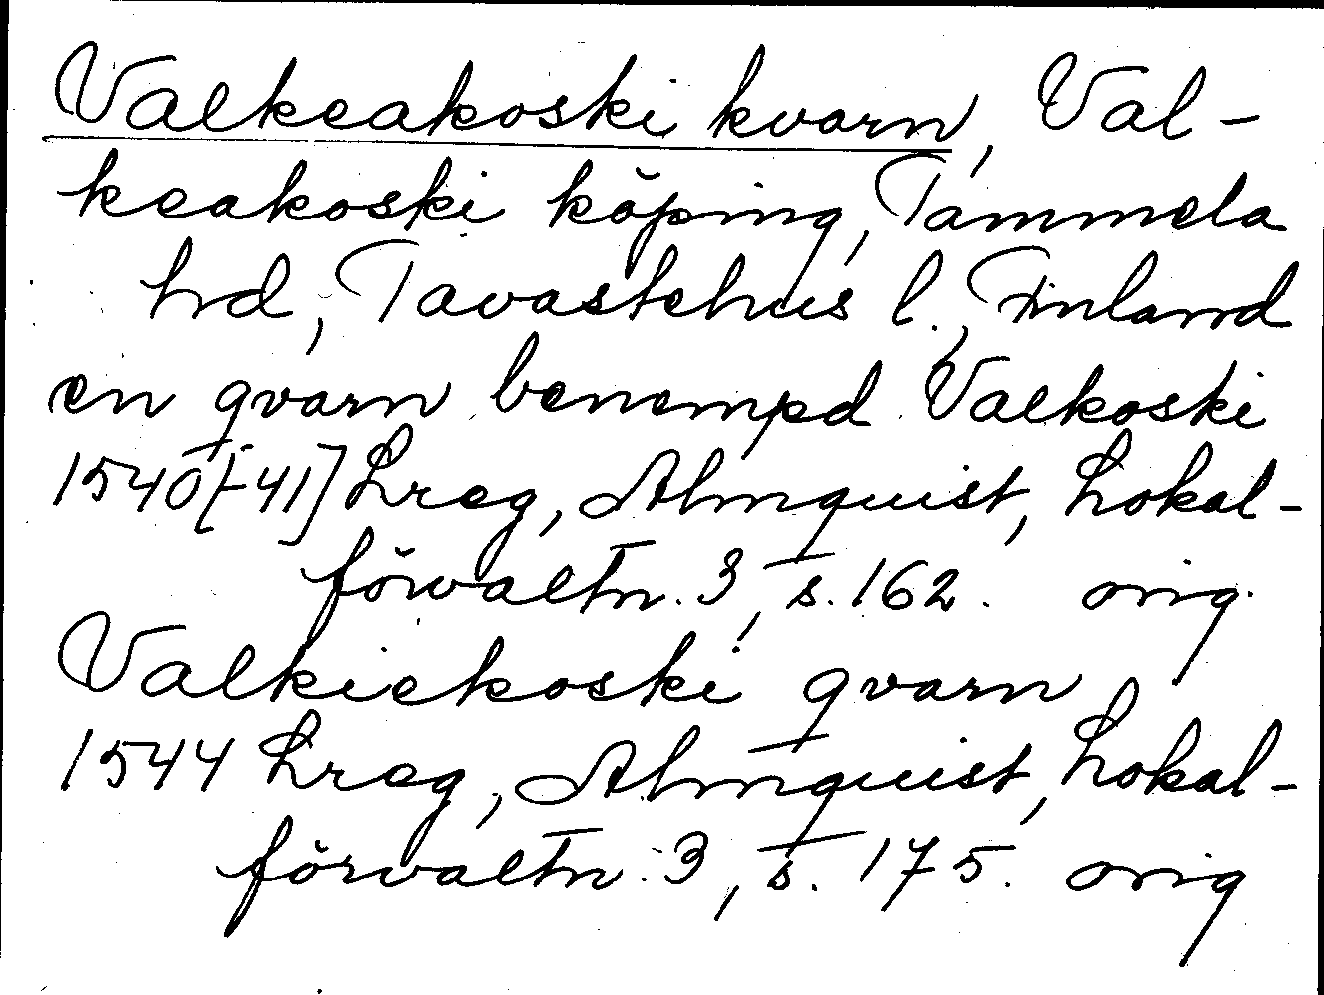 Valkeakoski kvarn, Val-
keakoski köping, Tammela
hd, Tavastehus l., Finland
en qvarn benempd Valkoski
1540[-41] Lreg, Almquist, Lokal-
förvaltn. 3, s. 162. orig.
Valkiekoski qvarn
1544 Lreg, Almquist, Lokal-
förvaltn. 3, s. 175. orig